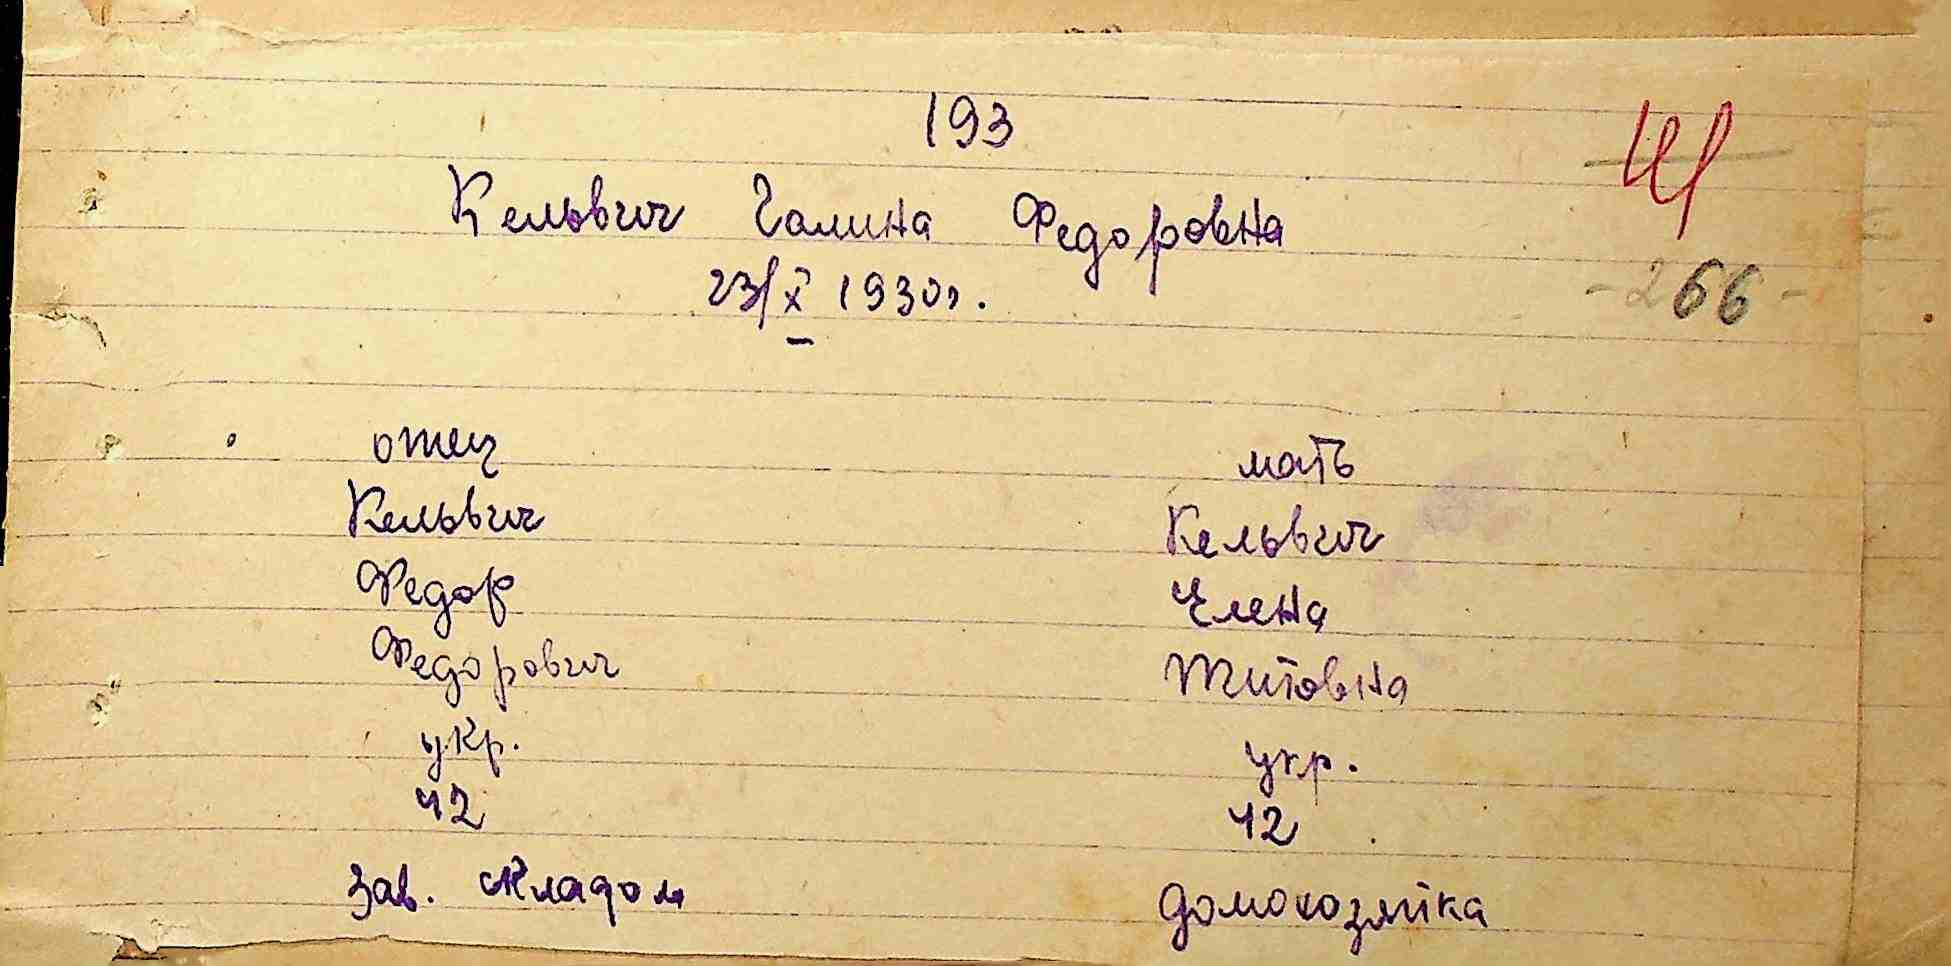 193
Кельвич Галина Федоровна
23/X 1930г.
- 266 -
отец мать
Кельвич Кельвич
Федор Елена
Федорович Титовна
укр. укр.
42 42
Зав. складом домохозяйка